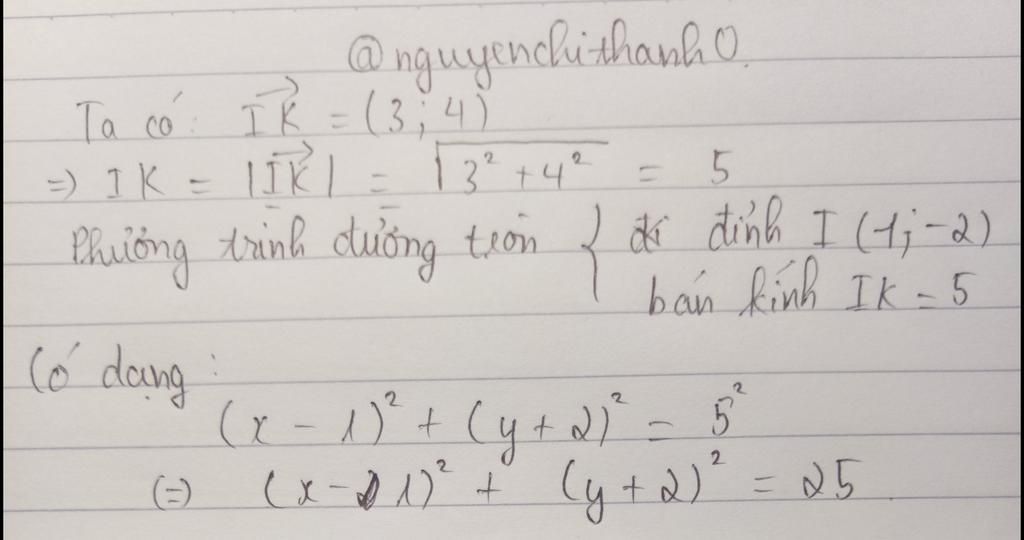 @nguyenchithanh0.
Ta có: $\overrightarrow{IK}$ = (3; 4)
=> IK = |$\overrightarrow{IK}$| = $\sqrt{3^2 + 4^2}$ = 5
Phương trình đường tròn { đi đỉnh I (1; -2)
bán kính IK = 5
Có dạng :
(x - 1)² + (y + 2)² = 5²
(=) (x - 1)² + (y + 2)² = 25